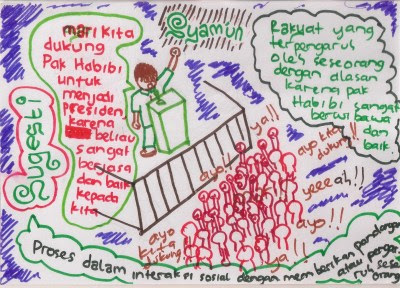 Syamun
mari kita
dukung
Pak Habibi
untuk
menjadi
presiden
karena
beliau
sangat
berjasa
dan baik
kepada
kita
Sugesti
Rakyat yang
terpengaruh
oleh seseorang
dengan alasan
karena pak
Habibi sangat
berwibawa
dan
baik
ya!!
ya!!
ayo!!
ayo kita
dukung!!
yeeeah!!
ayo!!
ya!!
ayo
kita
dukung!!
Proses dalam interaksi sosial dengan memberikan pandangan
atau pengaruh
seseorang